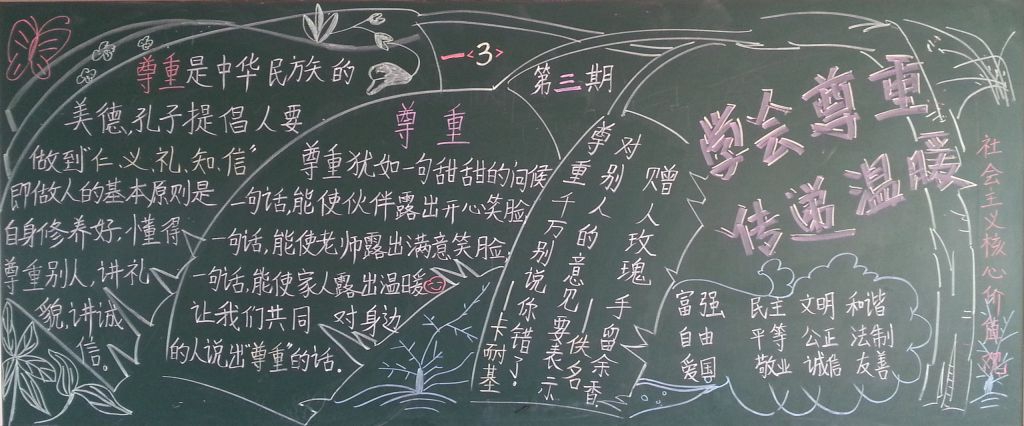 尊重是中华民族的
美德,孔子提倡人要
做到"仁、义、礼、知、信"
即做人的基本原则是
自身修养好,懂得
尊重别人,讲礼
貌,讲诚
信。
一<3>
第三期
尊重
尊重犹如一句甜甜的问候
一句话,能使伙伴露出开心笑脸
一句话,能使老师露出满意笑脸,
一句话,能使家人露出温暖
让我们共同 对身边
的人说出"尊重"的话.
尊重千万别说你错了。
对别人的意见要表示
一卡耐基
赠人玫瑰 手留余香
一佚名
学会尊重
传递温暖
富强 民主 文明 和谐
自由 平等 公正 法制
爱国 敬业 诚信 友善
社会主义核心价值观